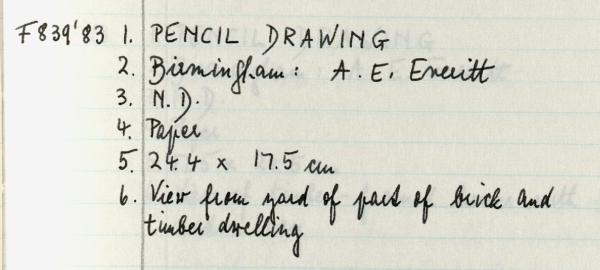 F839'83 1. PENCIL DRAWING
2. Birmingham: A. E. Everitt
3. N.D.
4. Paper
5. 24.4 x 17.5 cm
6. View from yard of part of brick and
timber dwelling